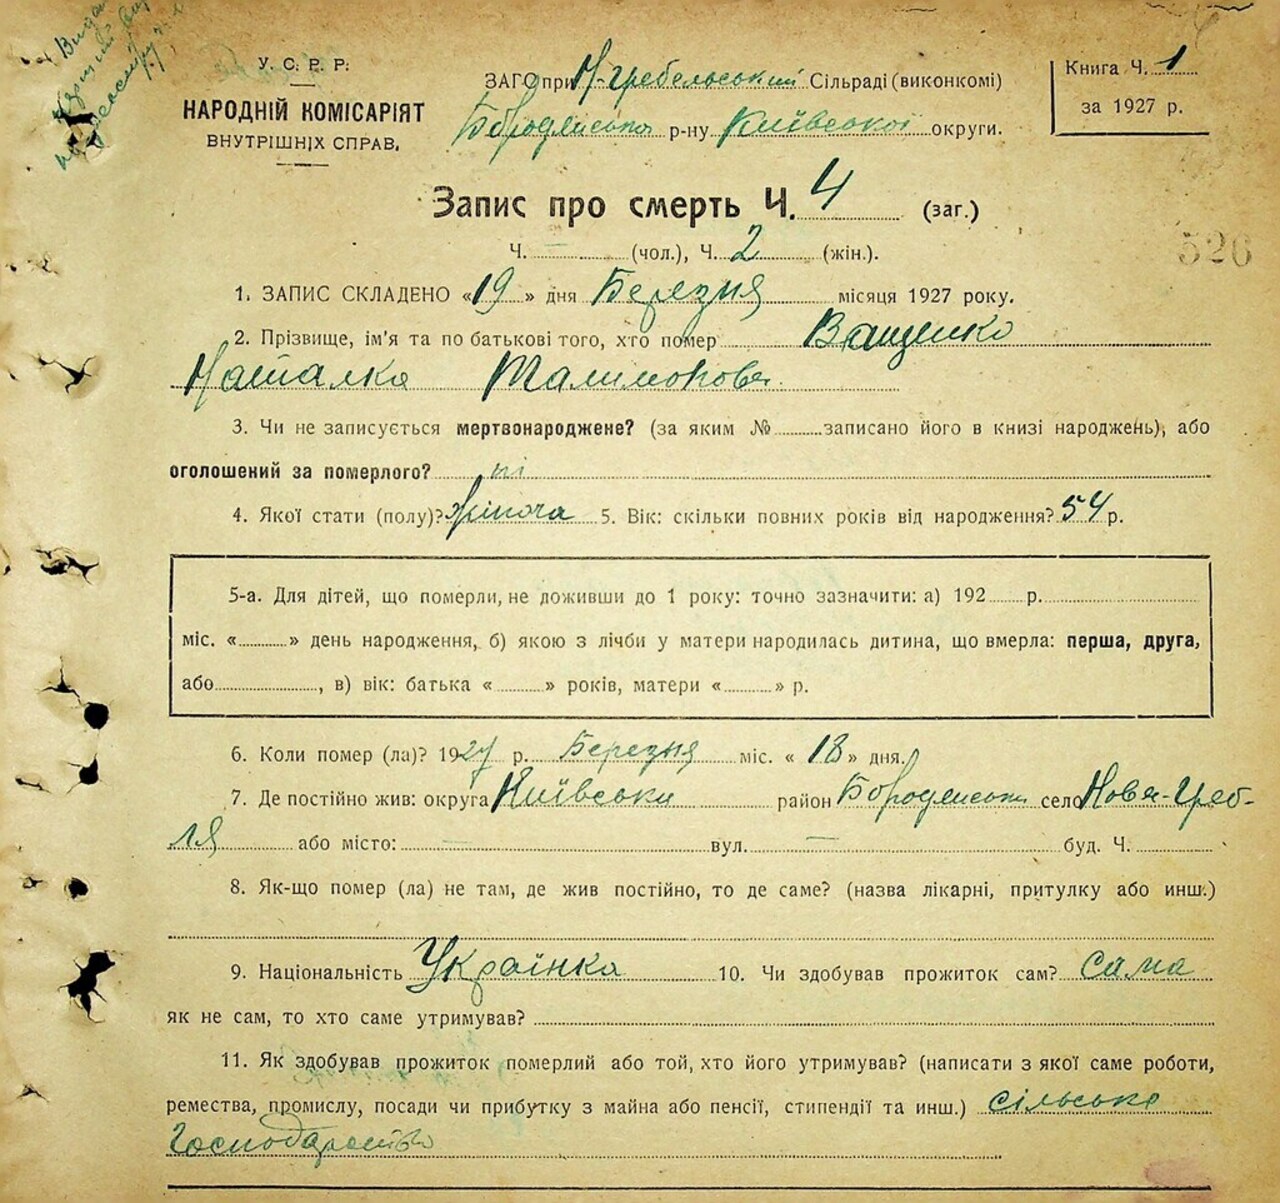 У. С. Р. Р.
НАРОДНІЙ КОМІСАРІЯТ
ВНУТРІШНІХ СПРАВ.
ЗАГС при Н-гребельський Сільраді (виконкомі)
Бородянська р-ну Київської округи.
Книга Ч. 1
за 1927 р.
Запис про смерть Ч. 4 (заг.)
Ч. — (чол.), Ч. 2 (жін.).
526
1. ЗАПИС СКЛАДЕНО «19» дня Березня місяця 1927 року.
2. Прізвище, ім'я та по батькові того, хто помер Ващенко
Наталка Талимонова
3. Чи не записується мертвонароджене? (за яким № записано його в книзі народжень), або
оголошений за померлого? ні
4. Якої стати (полу)? жіноча 5. Вік: скільки повних років від народження? 54 р.
5-а. Для дітей, що померли, не доживши до 1 року: точно зазначити: а) 192 р.
міс. « » день народження, б) якою з лічби у матери народилась дитина, що вмерла: перша, друга,
або , в) вік: батька « » років, матери « » р.
6. Коли помер (ла)? 1927 р. Березня міс. «18» дня.
7. Де постійно жив: округа Київська район Бородянська село Нова-Греб-
ля або місто: — вул. — буд. Ч.
8. Як-що помер (ла) не там, де жив постійно, то де саме? (назва лікарні, притулку або инш.)
9. Національність Українка 10. Чи здобував прожиток сам? сама
як не сам, то хто саме утримував?
11. Як здобував прожиток померлий або той, хто його утримував? (написати з якої саме роботи,
ремества, промислу, посади чи прибутку з майна або пенсії, стипендії та инш.) сільське
господарство